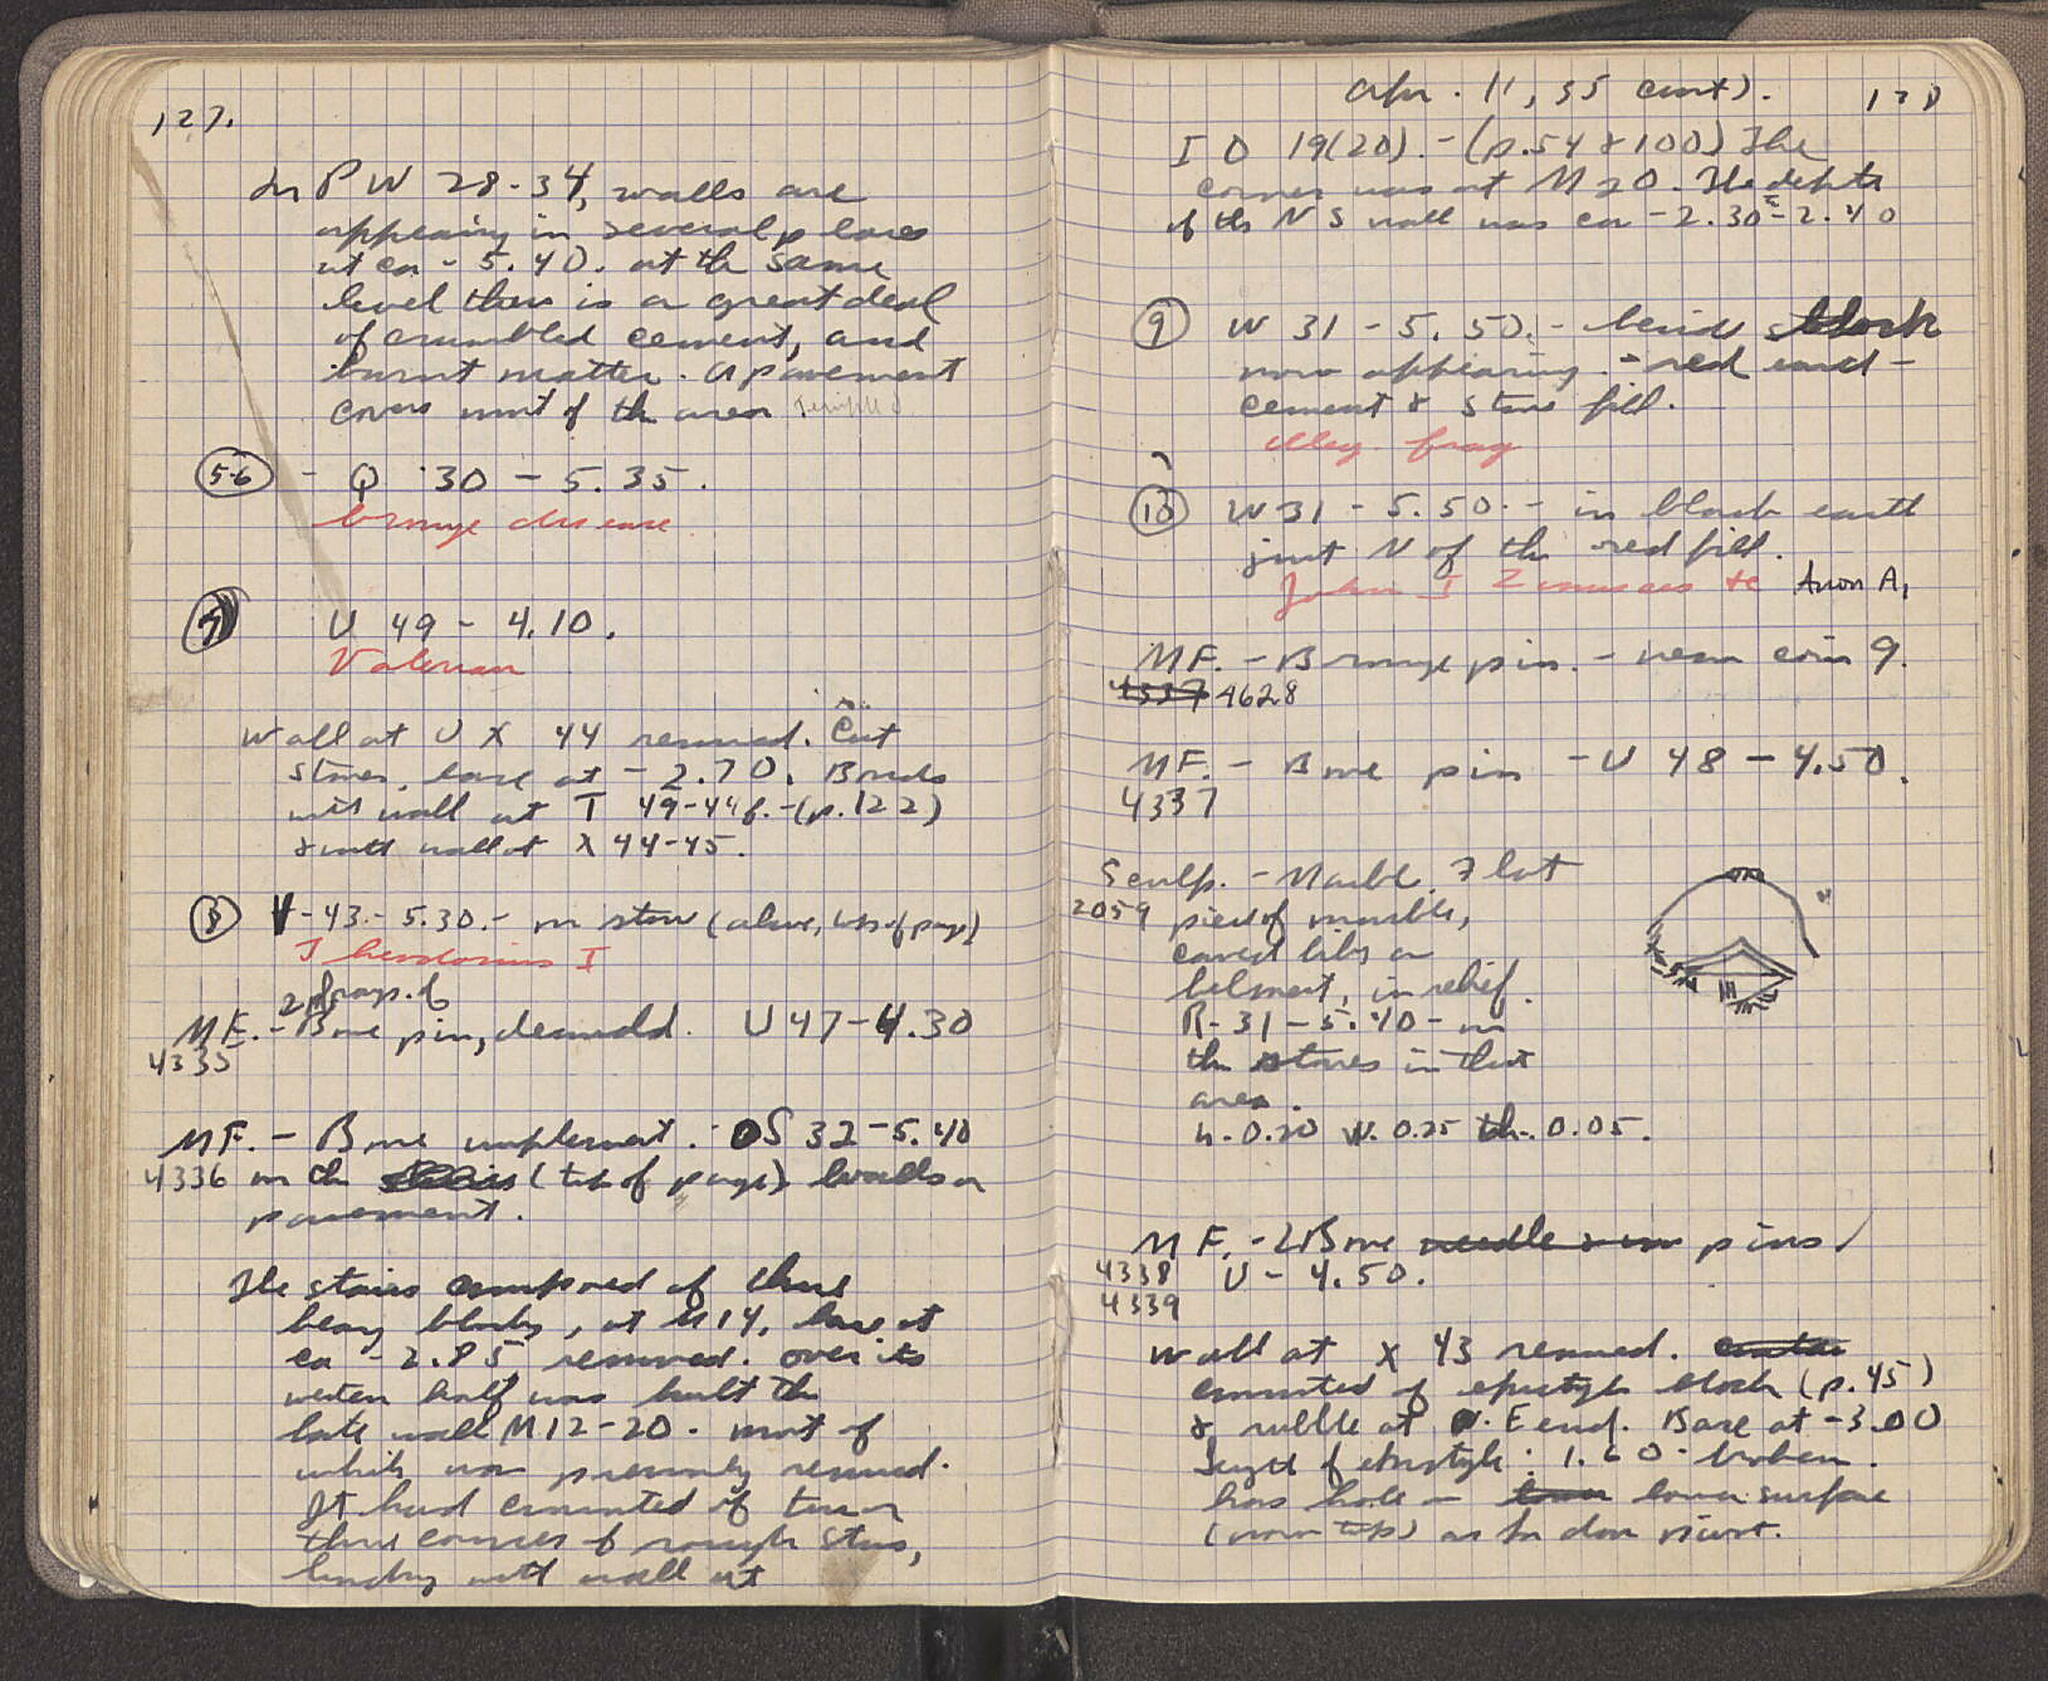 127.
In P W 28-34, walls are
appearing in several places
at ca - 5.40. at the same
level there is a great deal
of crumbled cement, and
burnt matter. A pavement
covers most of the area.
5-6 - Q 30 - 5.35.
bronze disease
7 U 49 - 4.10.
Valerian
Wall at U X 44 removed. Cut
stones, base at - 2.70. Bonds
with wall at T 49-44 f. - (p. 122)
& with wall at X 44-45.
8 V - 43 - 5.30. - in stow (above, of page)
Theodosius I
2 frags. of
MF. - Bone pin, decorated. U 47 - 4.30
4335
MF. - Bone implement. - S 32 - 5.40
4336 in the (top of page) walls or
pavement.
The stairs composed of three
heavy blocks, at M 14, base at
ca - 2.85, removed. Over its
western half was built the
late wall M 12-20. most of
which was previously removed.
It had consisted of two or
three courses of rough stones,
bonding with wall at
Apr. 11, 35 cont). 128
I O 19(20). - (p. 54 & 100) The
corner was at M 20. The depth
of the N S wall was ca - 2.30 - 2.40
9 W 31 - 5.50. - beside block
now appearing. - red earth -
cement & stone fill.
illeg. frag
10 W 31 - 5.50. - in black earth
just N of the red fill.
John I Zimisces etc Anon A,
MF. - Bronze pin. - near coin 9.
4337 4628
MF. - Bone pin - U 48 - 4.50.
4337
Sculp. - Marble. Flat
2059 piece of marble,
carved like a
helmet, in relief.
R - 31 - 5.40 - in
the stones in that
area.
h. 0.20 W. 0.25 th. 0.05.
MF. - 2 Bone needle pins
4338 U - 4.50.
4339
Wall at X 43 removed.
consisted of epistyle block (p. 45)
& rubble at E end. Base at - 3.00
Length of epistyle: 1.60 - broken.
has hole in lower lower surface
(now top) as for door pivot.